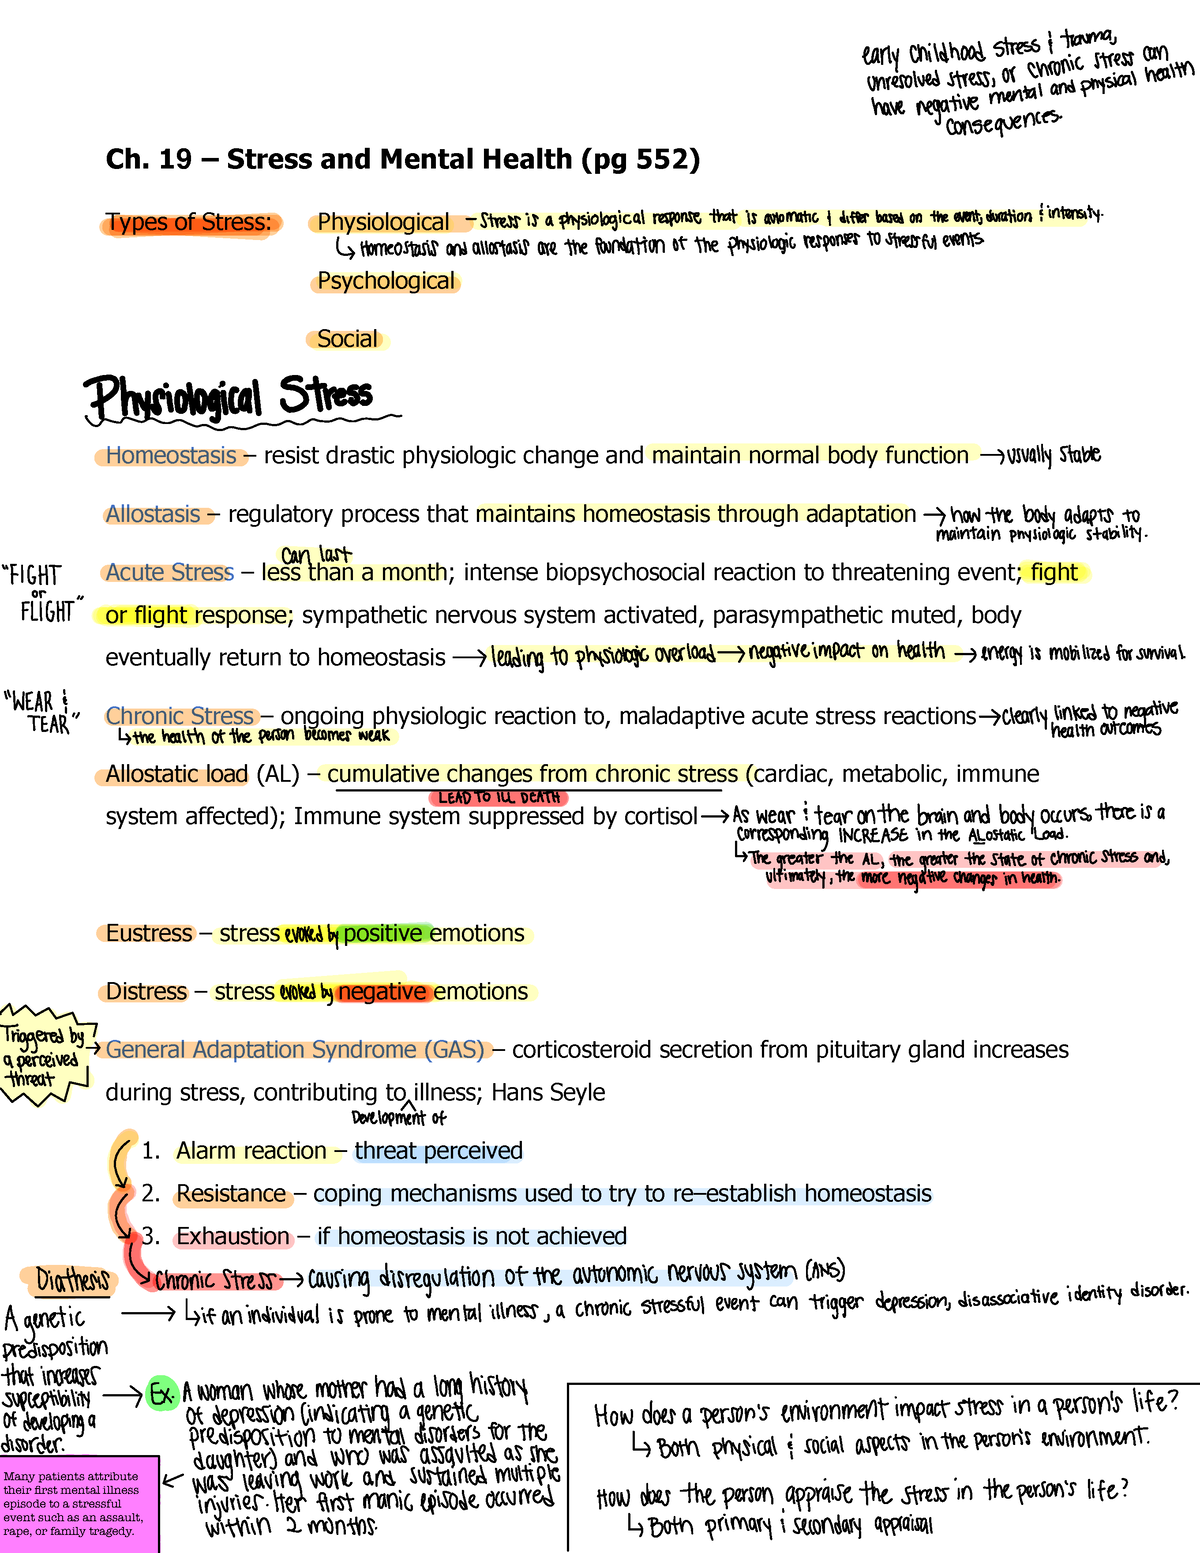 early childhood stress & trauma,
unresolved stress, or chronic stress can
have negative mental and physical health
consequences.
Ch. 19 – Stress and Mental Health (pg 552)
Types of Stress: Physiological – Stress is a physiological response that is automatic & differ based on the event, duration & intensity.
↳ Homeostasis and allostasis are the foundation of the physiologic responses to stressful events
Psychological
Social
Physiological Stress
Homeostasis – resist drastic physiologic change and maintain normal body function → usually stable
Allostasis – regulatory process that maintains homeostasis through adaptation → how the body adapts to
maintain physiologic stability.
can last
"FIGHT
or
FLIGHT"
Acute Stress – less than a month; intense biopsychosocial reaction to threatening event; fight
or flight response; sympathetic nervous system activated, parasympathetic muted, body
eventually return to homeostasis → leading to physiologic overload → negative impact on health → energy is mobilized for survival.
"WEAR &
TEAR"
Chronic Stress – ongoing physiologic reaction to, maladaptive acute stress reactions → clearly linked to negative
health outcomes
↳ the health of the person becomes weak
Allostatic load (AL) – cumulative changes from chronic stress (cardiac, metabolic, immune
LEAD TO ILL DEATH
system affected); Immune system suppressed by cortisol → As wear & tear on the brain and body occurs, there is a
corresponding INCREASE in the ALostatic Load.
↳ The greater the AL, the greater the state of chronic stress and,
ultimately, the more negative changes in health.
Eustress – stress evoked by positive emotions
Distress – stress evoked by negative emotions
Triggered by
a perceived
threat
→ General Adaptation Syndrome (GAS) – corticosteroid secretion from pituitary gland increases
during stress, contributing to ^ illness; Hans Seyle
Development of
1. Alarm reaction – threat perceived
2. Resistance – coping mechanisms used to try to re–establish homeostasis
3. Exhaustion – if homeostasis is not achieved
Chronic Stress → causing disregulation of the autonomic nervous system (ANS)
↳ if an individual is prone to mental illness, a chronic stressful event can trigger depression, disassociative identity disorder.
Diathesis
A genetic
predisposition
that increases
supceptibility
of developing a
disorder.
Ex. A woman whose mother had a long history
of depression (indicating a genetic
predisposition to mental disorders for the
daughter) and who was assaulted as she
was leaving work and sustained multiple
injuries. Her first manic episode occurred
within 2 months.
Many patients attribute
their first mental illness
episode to a stressful
event such as an assault,
rape, or family tragedy.
How does a person's environment impact stress in a person's life?
↳ Both physical & social aspects in the person's environment.
How does the person appraise the stress in the person's life?
↳ Both primary & secondary appraisal